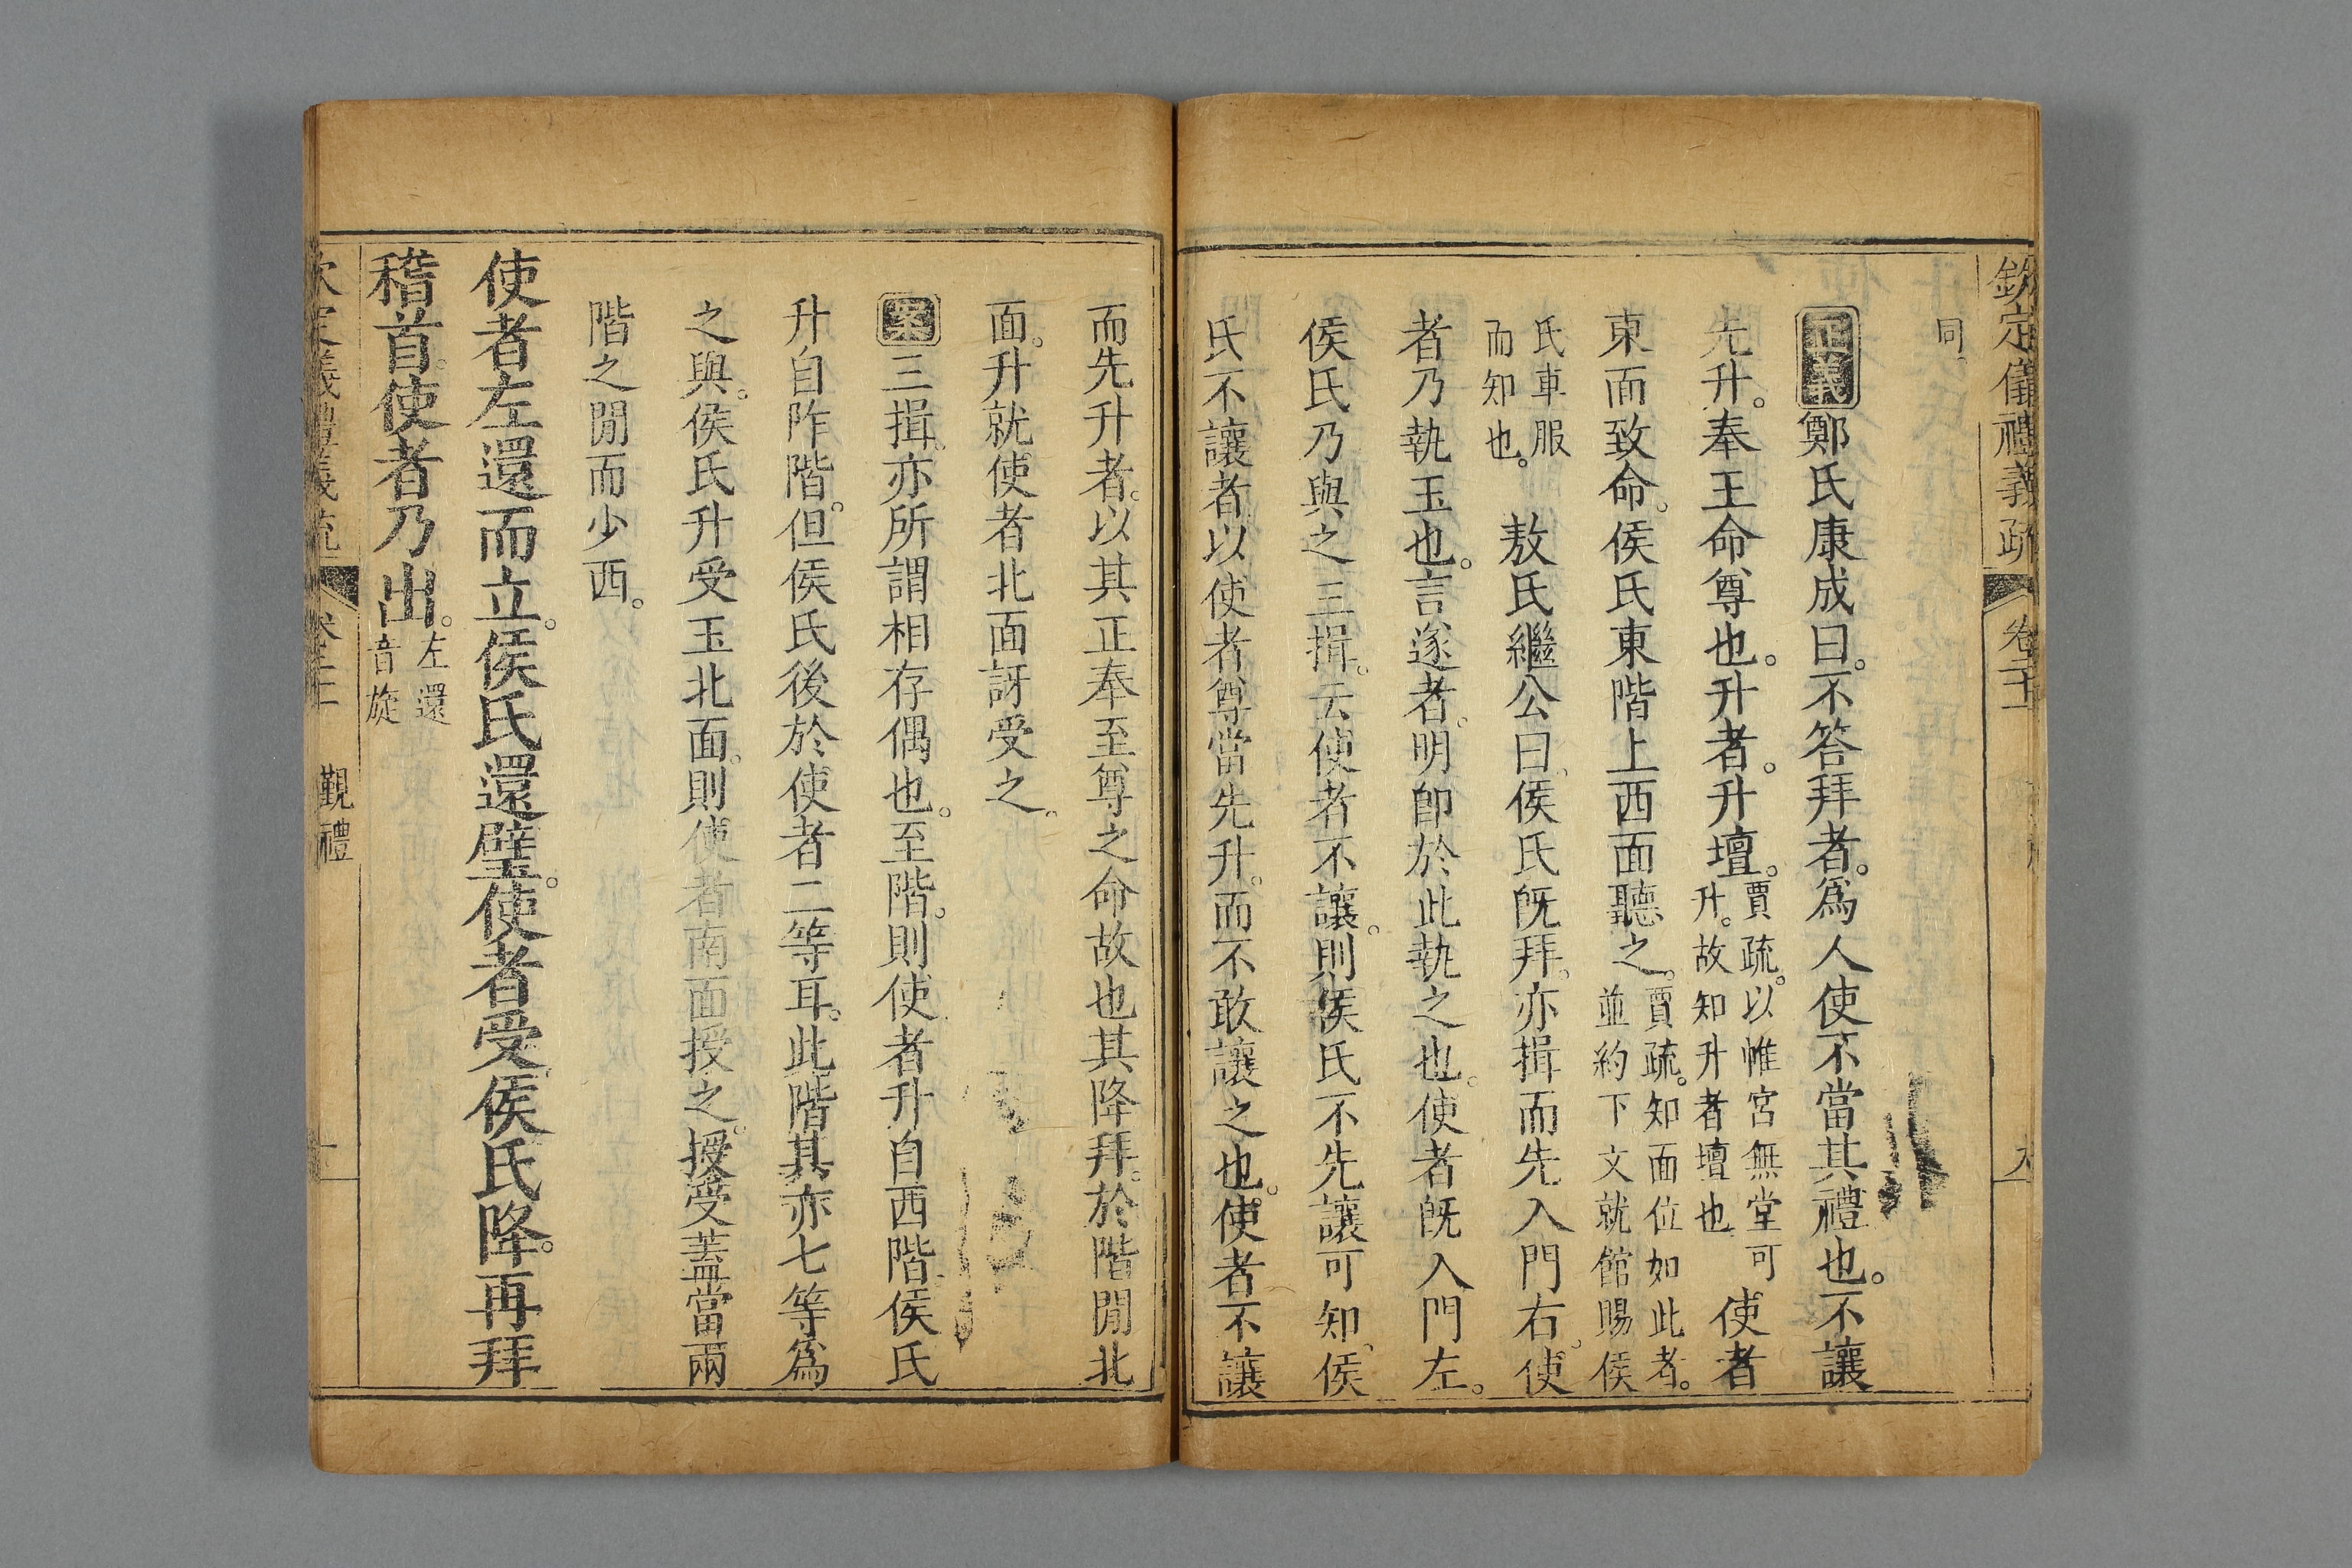 欽定儀禮義疏 卷二十一
同。
正義鄭氏康成曰。不答拜者。爲人使不當其禮也。不讓
先升。奉王命尊也。升者。升壇。賈疏。以帷宮無堂可升。故知升者壇也 使者
東面致命。侯氏東階上西面聽之。賈疏。知面位如此者。並約下文就館賜侯
氏車服而知也。 敖氏繼公曰。侯氏旣拜。亦揖而先入門右。使
者乃執玉也。言遂者。明卽於此執之也。使者旣入門左。
侯氏乃與之三揖。云使者不讓。則侯氏不先讓可知。侯
氏不讓者以使者尊當先升。而不敢讓之也。使者不讓
而先升者。以其正奉至尊之命故也其降拜。於階閒北
面。升就使者北面訝受之。
案三揖。亦所謂相存偶也。至階。則使者升自西階。侯氏
升自阼階。但侯氏後於使者二等耳。此階其亦七等爲
之與。侯氏升受玉北面。則使者南面授之。授受蓋當兩
階之閒而少西。
使者左還而立。侯氏還璧。使者受。侯氏降。再拜
稽首。使者乃出。左還音旋
義禮義疏 覲禮